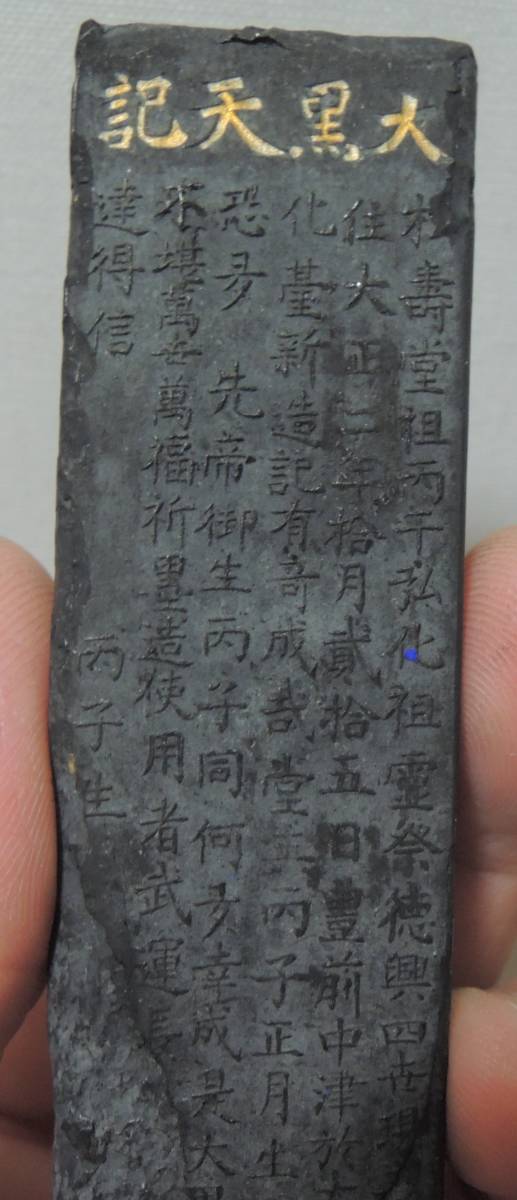 大黑天記
松壽堂祖丙午弘化祖霊祭徳興四世現
住大正二年拾月貳拾五日豊前中津於
化䑓新造記有奇成哉堂主丙子正月生
恐多 先帝御生丙子同何多幸成是大黒
不堪萬世萬福祈墨造使用者武運長
達得信 丙子生